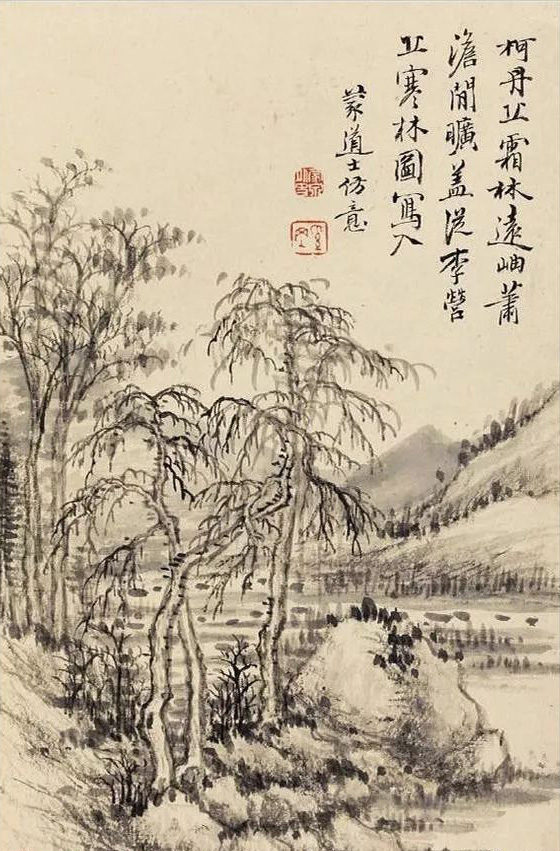 柯丹丘霜林遠岫蕭
澹閒曠蓋從李營
丘寒林圖寫入
蒙道士仿意